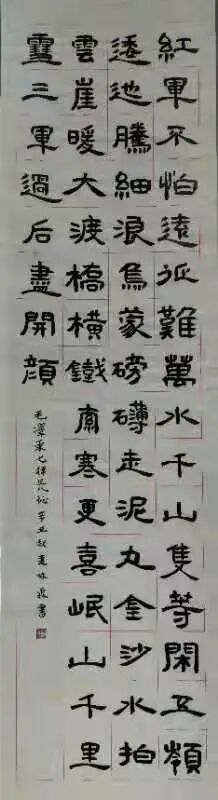 紅軍不怕遠征難萬水千山隻等閑五嶺
逶迤騰細浪烏蒙磅礴走泥丸金沙水拍
雲崖暖大渡橋橫鐵索寒更喜岷山千里
雪三軍過后盡開顏
毛澤東七律長征辛丑秋書